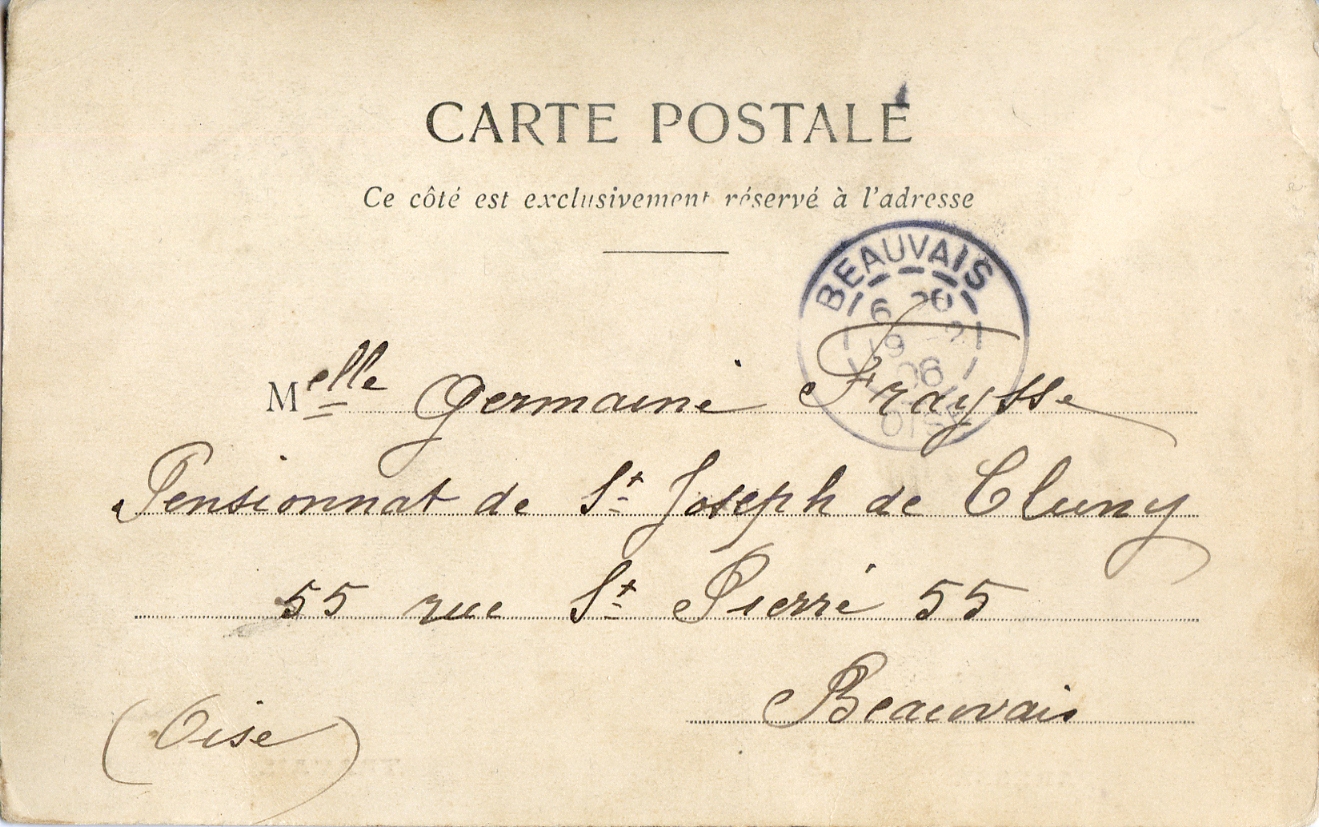 CARTE POSTALE
Ce côté est exclusivement réservé à l'adresse
BEAUVAIS
6 20
9 -2
06
OISE
Melle Germaine Fraysse
Pensionnat de St Joseph de Cluny
55 rue St Pierre 55
Beauvais
(Oise)